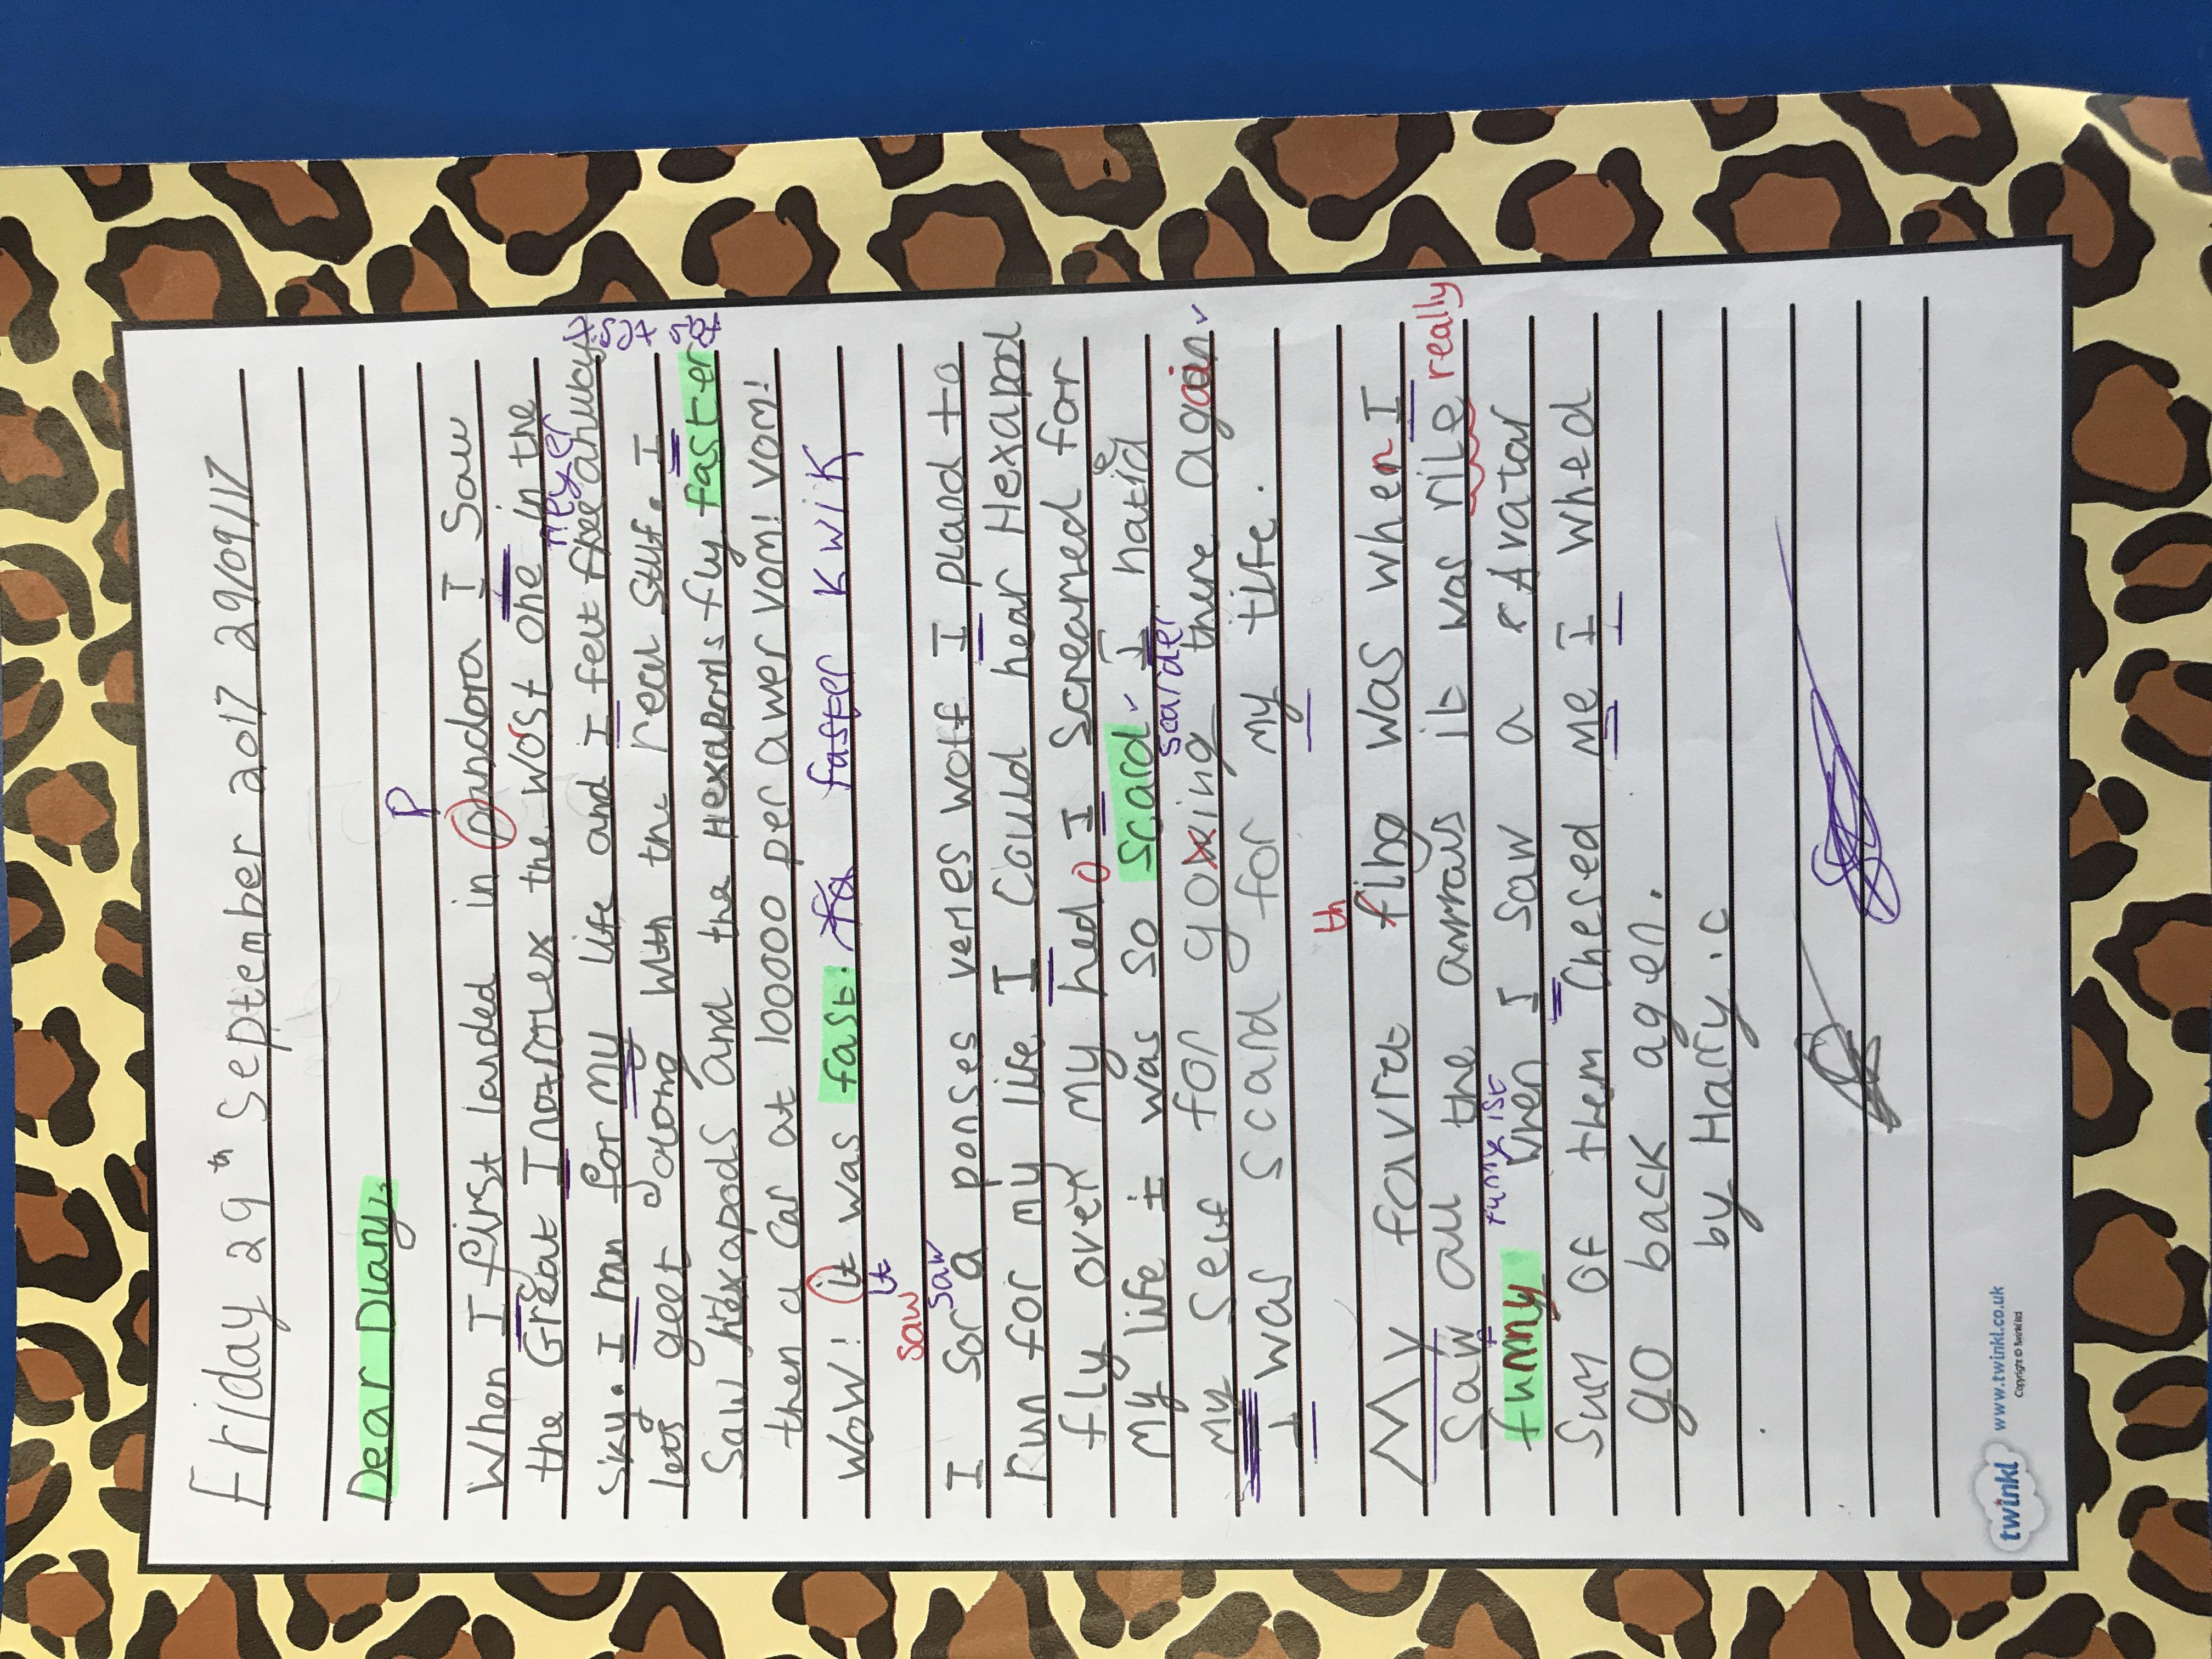 Friday 29th September 2017 29/09/17
Dear Diary,
P
When I first landed in pandora I Saw
the Great Inorouex the Worst one in the
never
Sky. I ran for my life and I felt
lets geet Solong with the real Stuf. I
Saw Hexapods and the Hexapods fly faster
then a car at 100000 per awer vom! vom!
Wow! it was fast. fa faster kwik
It
saw saw
I Sor a ponses vermes wolf I pland to
run for my life I Could hear Hexapod
fly over my hed. I Screamed for
My life it was so scard I hatid
scarder
My Self for going there again
I was scard for my life.
th
My favrit fing was when I
Saw all the amraus it was rile really
funny funnyist when I saw a Avatar
Sum of them Chesed me I whed
go back agen.
by Harry.c
twinkl www.twinkl.co.uk